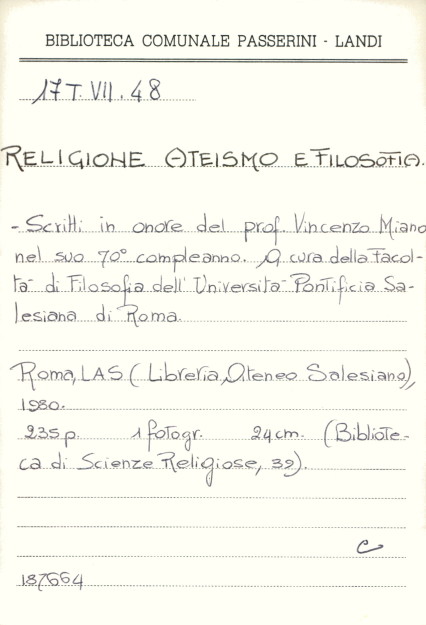 BIBLIOTECA COMUNALE PASSERINI - LANDI
17 T. VII. 48
RELIGIONE ATEISMO E FILOSOFIA.
- Scritti in onore del prof. Vincenzo Miano
nel suo 70° compleanno. A cura della Facol-
tà di Filosofia dell'Università Pontificia Sa-
lesiana di Roma.
Roma, LAS (Libreria Ateneo Salesiano),
1980.
235 p. 1 fotogr. 24 cm. (Bibliote-
ca di Scienze Religiose, 39).
C
187664